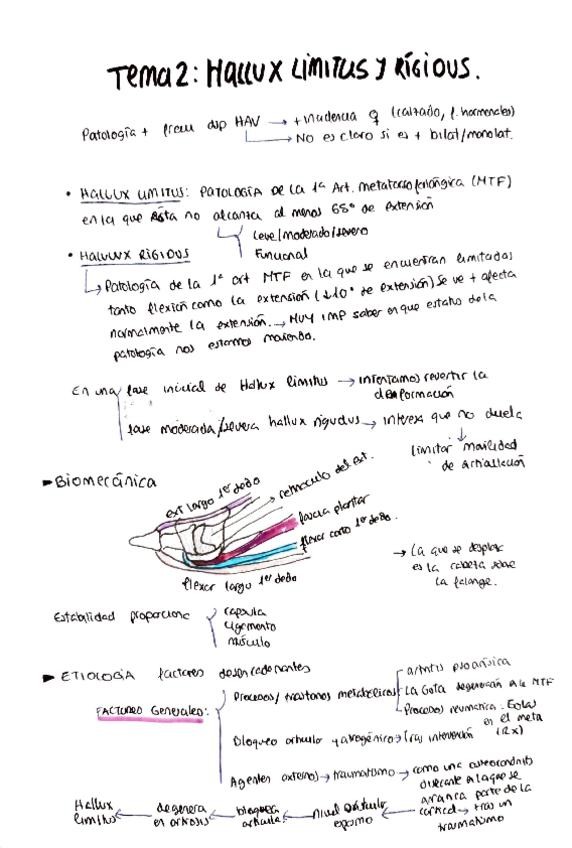 Tema 2: Hallux Limitus y Rígidus.
Patología + frecu dsp HAV → + incidencia ♀ (calzado, f. hormonales)
→ No es claro si es + bilat/monolat.
• HALLUX LIMITUS: PATOLOGÍA DE LA 1ª Art. metatarsofalángica (MTF)
en la que ésta no alcanza al menos 65º de extensión
Leve/moderado/severo
Funcional
• HALLUX RIGIDUS
→ Patología de la 1ª art MTF en la que se encuentran limitadas
tanto flexión como la extensión (↓10º de extensión) Se ve + afecta
normalmente la extensión. → MUY IMP saber en que estadio de la
patología nos estamos moviendo.
En una fase inicial de Hallux limitus → intentamos revertir la
deformación
fase moderada/severa hallux rigidus → interesa que no duela
↓
limitar movilidad
de articulación
► Biomecánica
ext largo 1er dedo
retináculo del ext.
fascia plantar
flexor corto 1er dedo.
flexor largo 1er dedo
→ La que se desplaza
es la cabeza sobre
la falange.
Estabilidad proporcione
capsula
ligamento
músculo
► ETIOLOGÍA factores desencadenantes
FACTORES Generales:
Procesos/trastornos metabólicos
artritis psoriásica
La Gota degeneración de la MTF
Procesos reumatica.
en el meta
(Rx)
Bloqueo articular yatrogénico → (tras intervención
Agentes externos → traumatismo → como una osteocondritis
disecante en la que se
arranca parte de la
cortical → tras un
traumatismo
Hallux
limitus ← degenera
en artrosis ← bloqueo
articula. ← nivel articular